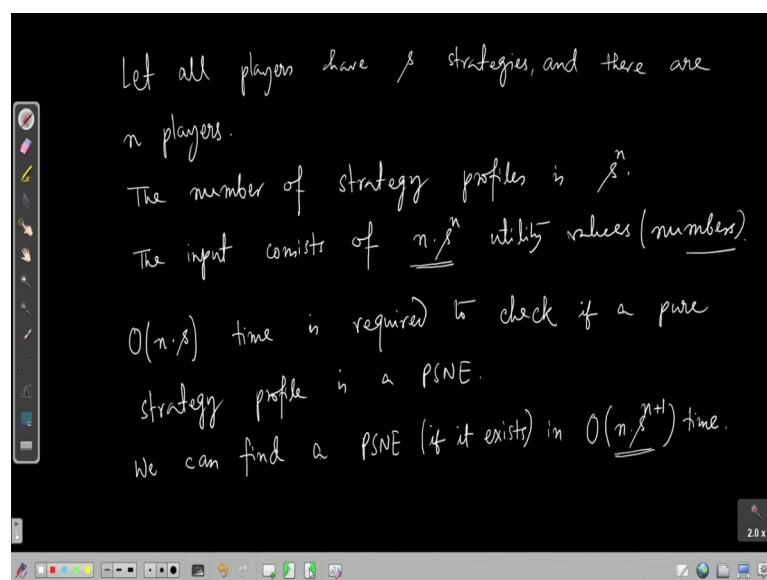 Let all players have s strategies, and there are
n players.
The number of strategy profiles is sⁿ.
The input consists of n·sⁿ utility values (numbers).
O(n·s) time is required to check if a pure
strategy profile is a PSNE.
We can find a PSNE (if it exists) in O(n·sⁿ⁺¹) time.
2.0 x